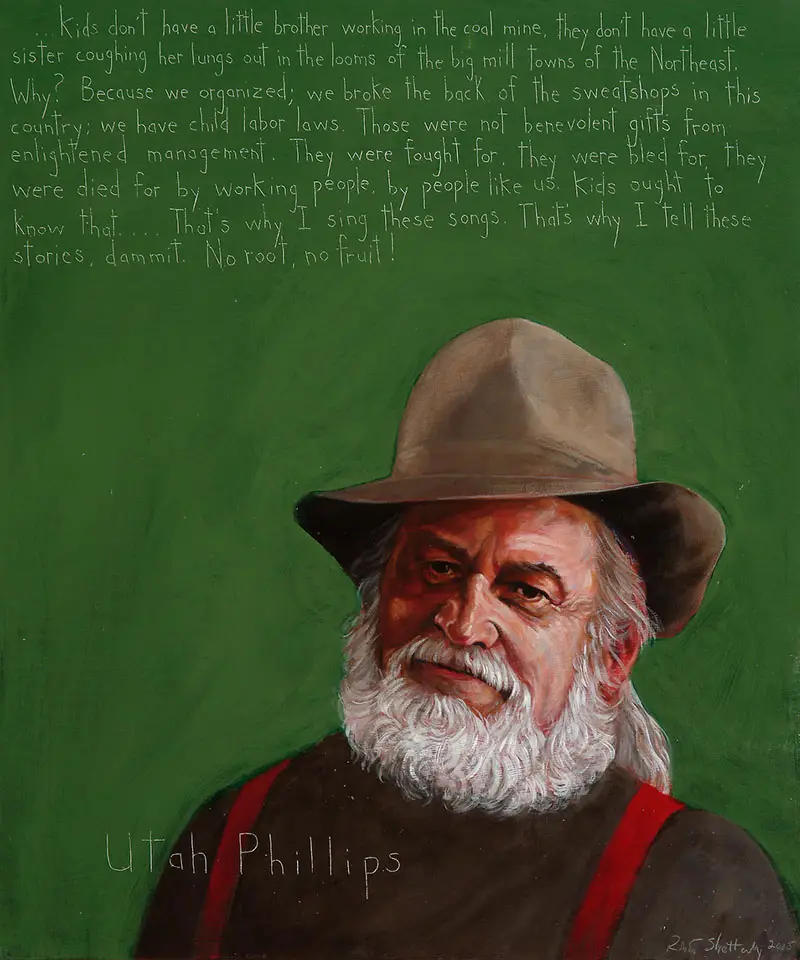 ... Kids don't have a little brother working in the coal mine, they don't have a little
sister coughing her lungs out in the looms of the big mill towns of the Northeast.
Why? Because we organized; we broke the back of the sweatshops in this
country; we have child labor laws. Those were not benevolent gifts from
enlightened management. They were fought for, they were bled for, they
were died for by working people, by people like us. Kids ought to
know that.... That's why I sing these songs. That's why I tell these
stories, dammit. No root, no fruit!
Utah Phillips
Shetterly